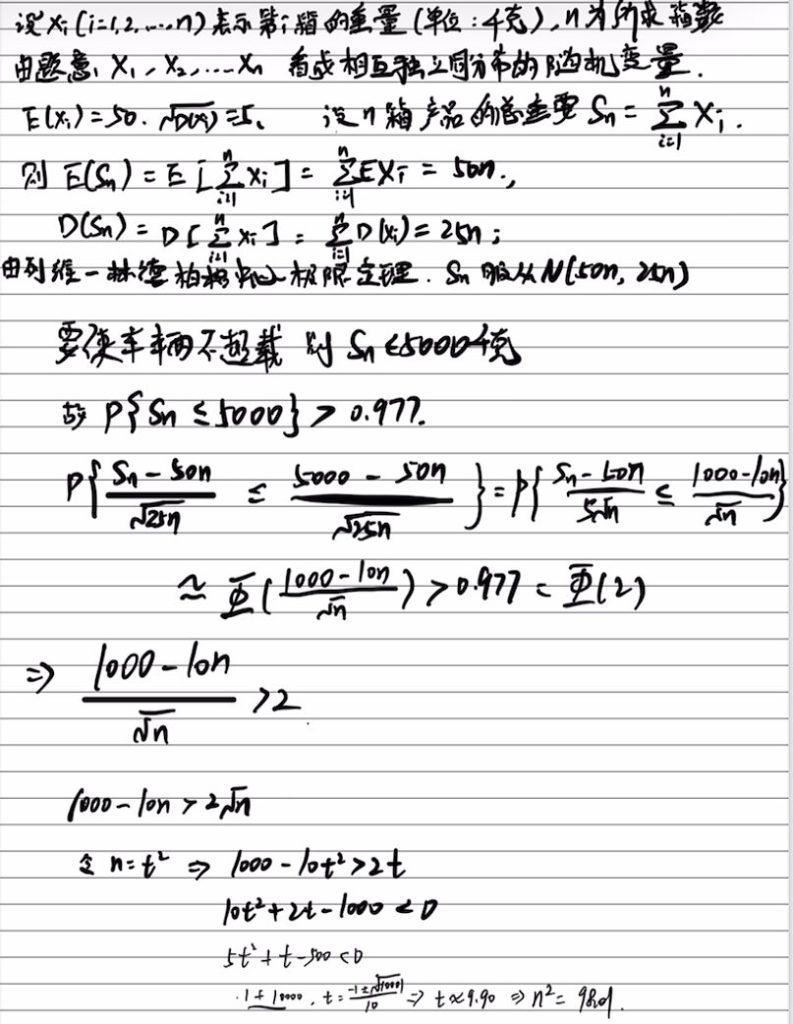 设 Xi (i=1,2,…,n) 表示第i箱的重量 (单位:千克), n为所求箱数
由题意, X₁, X₂, … Xn 看成相互独立同分布的随机变量.
E(Xi)=50. √D(Xi)=5. 设n箱产品的总重要 Sn = ∑ⁿᵢ₌₁ Xi.
则 E(Sn) = E[∑ⁿᵢ₌₁ Xi] = ∑ⁿᵢ₌₁ EXi = 50n.,
D(Sn) = D[∑ⁿᵢ₌₁ Xi] = ∑ⁿᵢ₌₁ D(Xi) = 25n;
由列维-林德柏格中心极限定理. Sn 服从 N(50n, 25n)
要使车辆不超载 则 Sn ≤ 5000千克
故 P{Sn ≤ 5000} > 0.977.
P{(Sn - 50n)/√25n ≤ (5000 - 50n)/√25n} = P{(Sn - 50n)/5√n ≤ (1000-10n)/√n}
≈ Φ((1000-10n)/√n) > 0.977 = Φ(2)
⇒ (1000-10n)/√n > 2
1000-10n > 2√n
令 n=t² ⇒ 1000-10t² > 2t
10t²+2t-1000 < 0
5t²+t-500 < 0
1+10000, t = (-1±√10001)/10 ⇒ t≈9.90 ⇒ n²= 98.01.